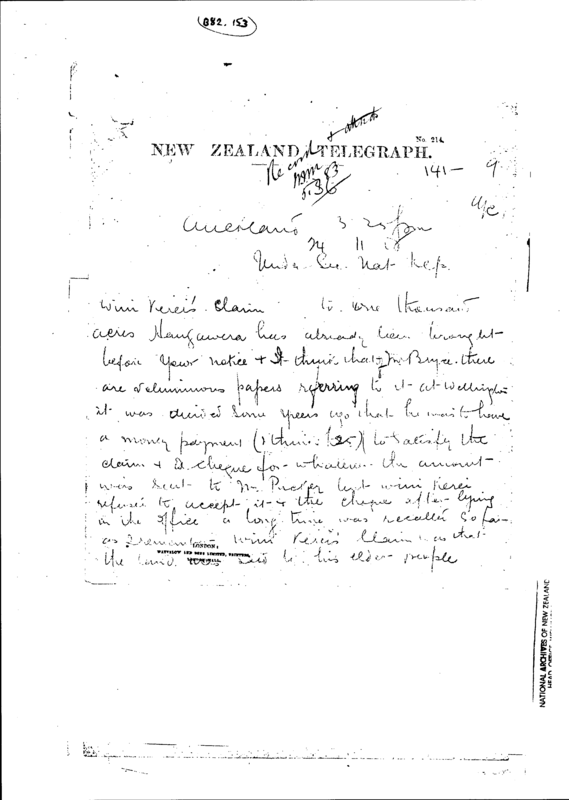 G82.153
No. 214.
NEW ZEALAND TELEGRAPH.
Record
83
5.36
141 — 9
Auckland 3 25 pm
24 11
Under Sec. Nat Dep.
Wini Kerei's Claim to one thousand
acres Hangawera has already been brought
before your notice + I think that of Mr Bryce. there
are voluminous papers referring to it at Wellington
it was decided some years ago that he was to have
a money payment (I think £25) to satisfy the
claim + a cheque for whatever the amount
was sent to Mr Puckey but Wini Kerei
refused to accept it + the cheque after lying
in the office a long time was recalled So far
as I remember Wini Kerei's Claim was that
LONDON:
WATERLOW AND SONS LIMITED, PRINTERS,
the land was said to his elder people
NATIONAL ARCHIVES OF NEW ZEALAND
HEAD OFFICE